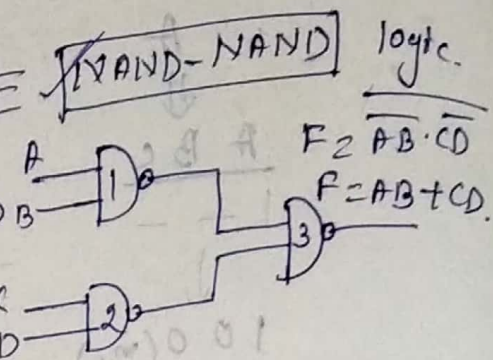 NAND-NAND logic.
F = \overline{\overline{AB} \cdot \overline{CD}}
F = AB + CD.
A
B
1
3
2
D